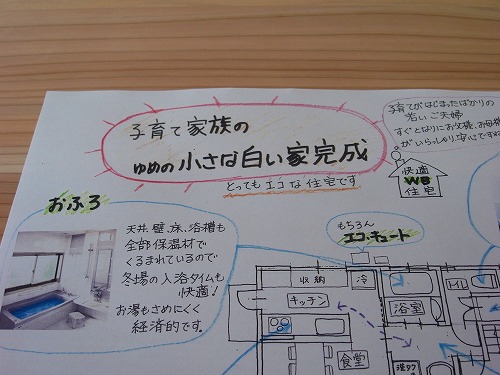 子育て家族の
ゆめの小さな白い家完成
とってもエコな住宅です
子育てがはじまったばかりの
若いご夫婦
すぐとなりにお父様、お母様
がいらっしゃり安心ですね
快適
WB
住宅
おふろ
天井、壁、床、浴槽も
全部保温材で
くるまれているので
冬場の入浴タイムも
快適!
お湯もさめにくく
経済的です。
もちろん
エコ・キュート
収納
冷
キッチン
浴室
トイレ
食堂
洗タク